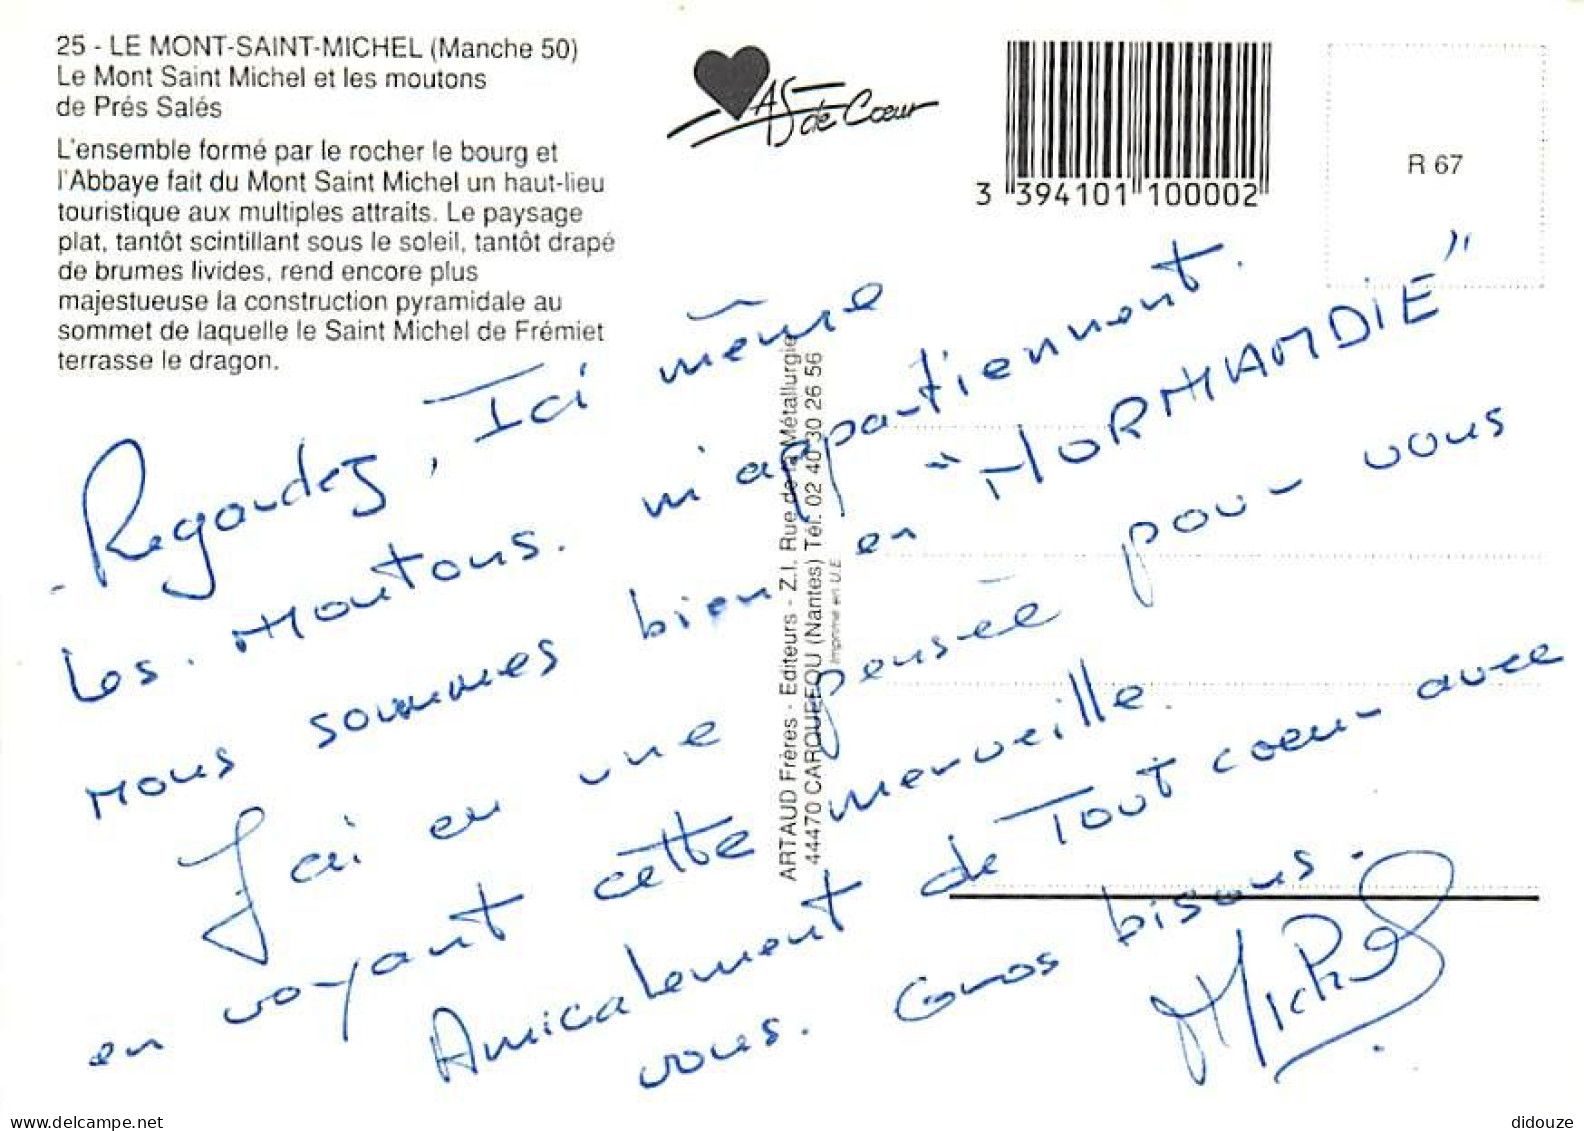 25 - LE MONT-SAINT-MICHEL (Manche 50)
Le Mont Saint Michel et les moutons
de Prés Salés
L'ensemble formé par le rocher le bourg et
l'Abbaye fait du Mont Saint Michel un haut-lieu
touristique aux multiples attraits. Le paysage
plat, tantôt scintillant sous le soleil, tantôt drapé
de brumes livides, rend encore plus
majestueuse la construction pyramidale au
sommet de laquelle le Saint Michel de Frémiet
terrasse le dragon.
As de Cœur
3 394101 100002
R 67
ARTAUD Frères - Editeurs - Z.I. Rue de la Métallurgie
44470 CARQUEFOU (Nantes) Tél. 02 40 30 26 56
Imprimé en U.E
Regardez, Ici même
les moutons m'appartiennent.
nous sommes bien en "NORMANDIE"
J'ai eu une pensée pour vous
en voyant cette merveille.
Amicalement de Tout coeur avec
vous. Gros bisous.
Michel
delcampe.net
didouze